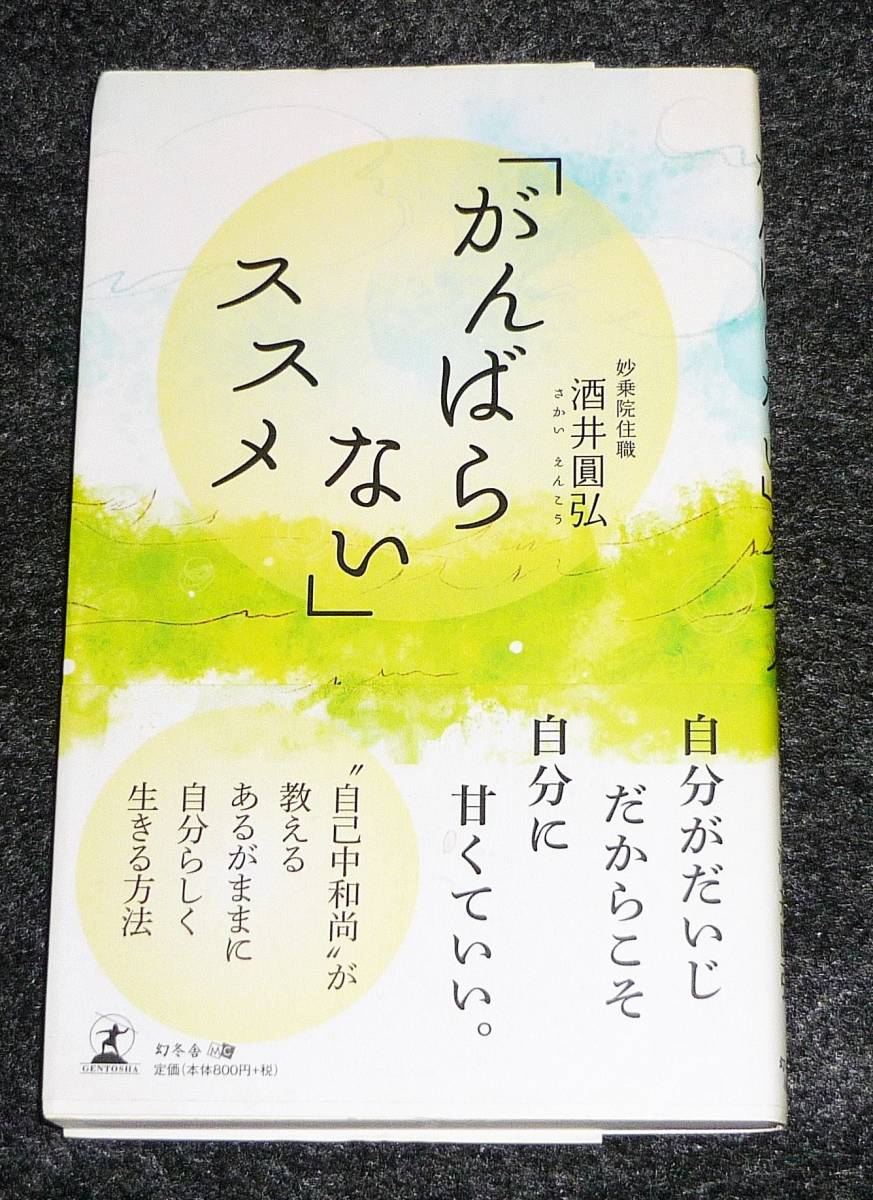 「がんばら
ない」
ススメ
妙乗院住職
酒井圓弘
さかい えんこう
自分がだいじ
だからこそ
自分に
甘くていい。
〝自己中和尚〟が
教える
あるがままに
自分らしく
生きる方法
GENTOSHA
幻冬舎 MC
定価(本体800円+税)